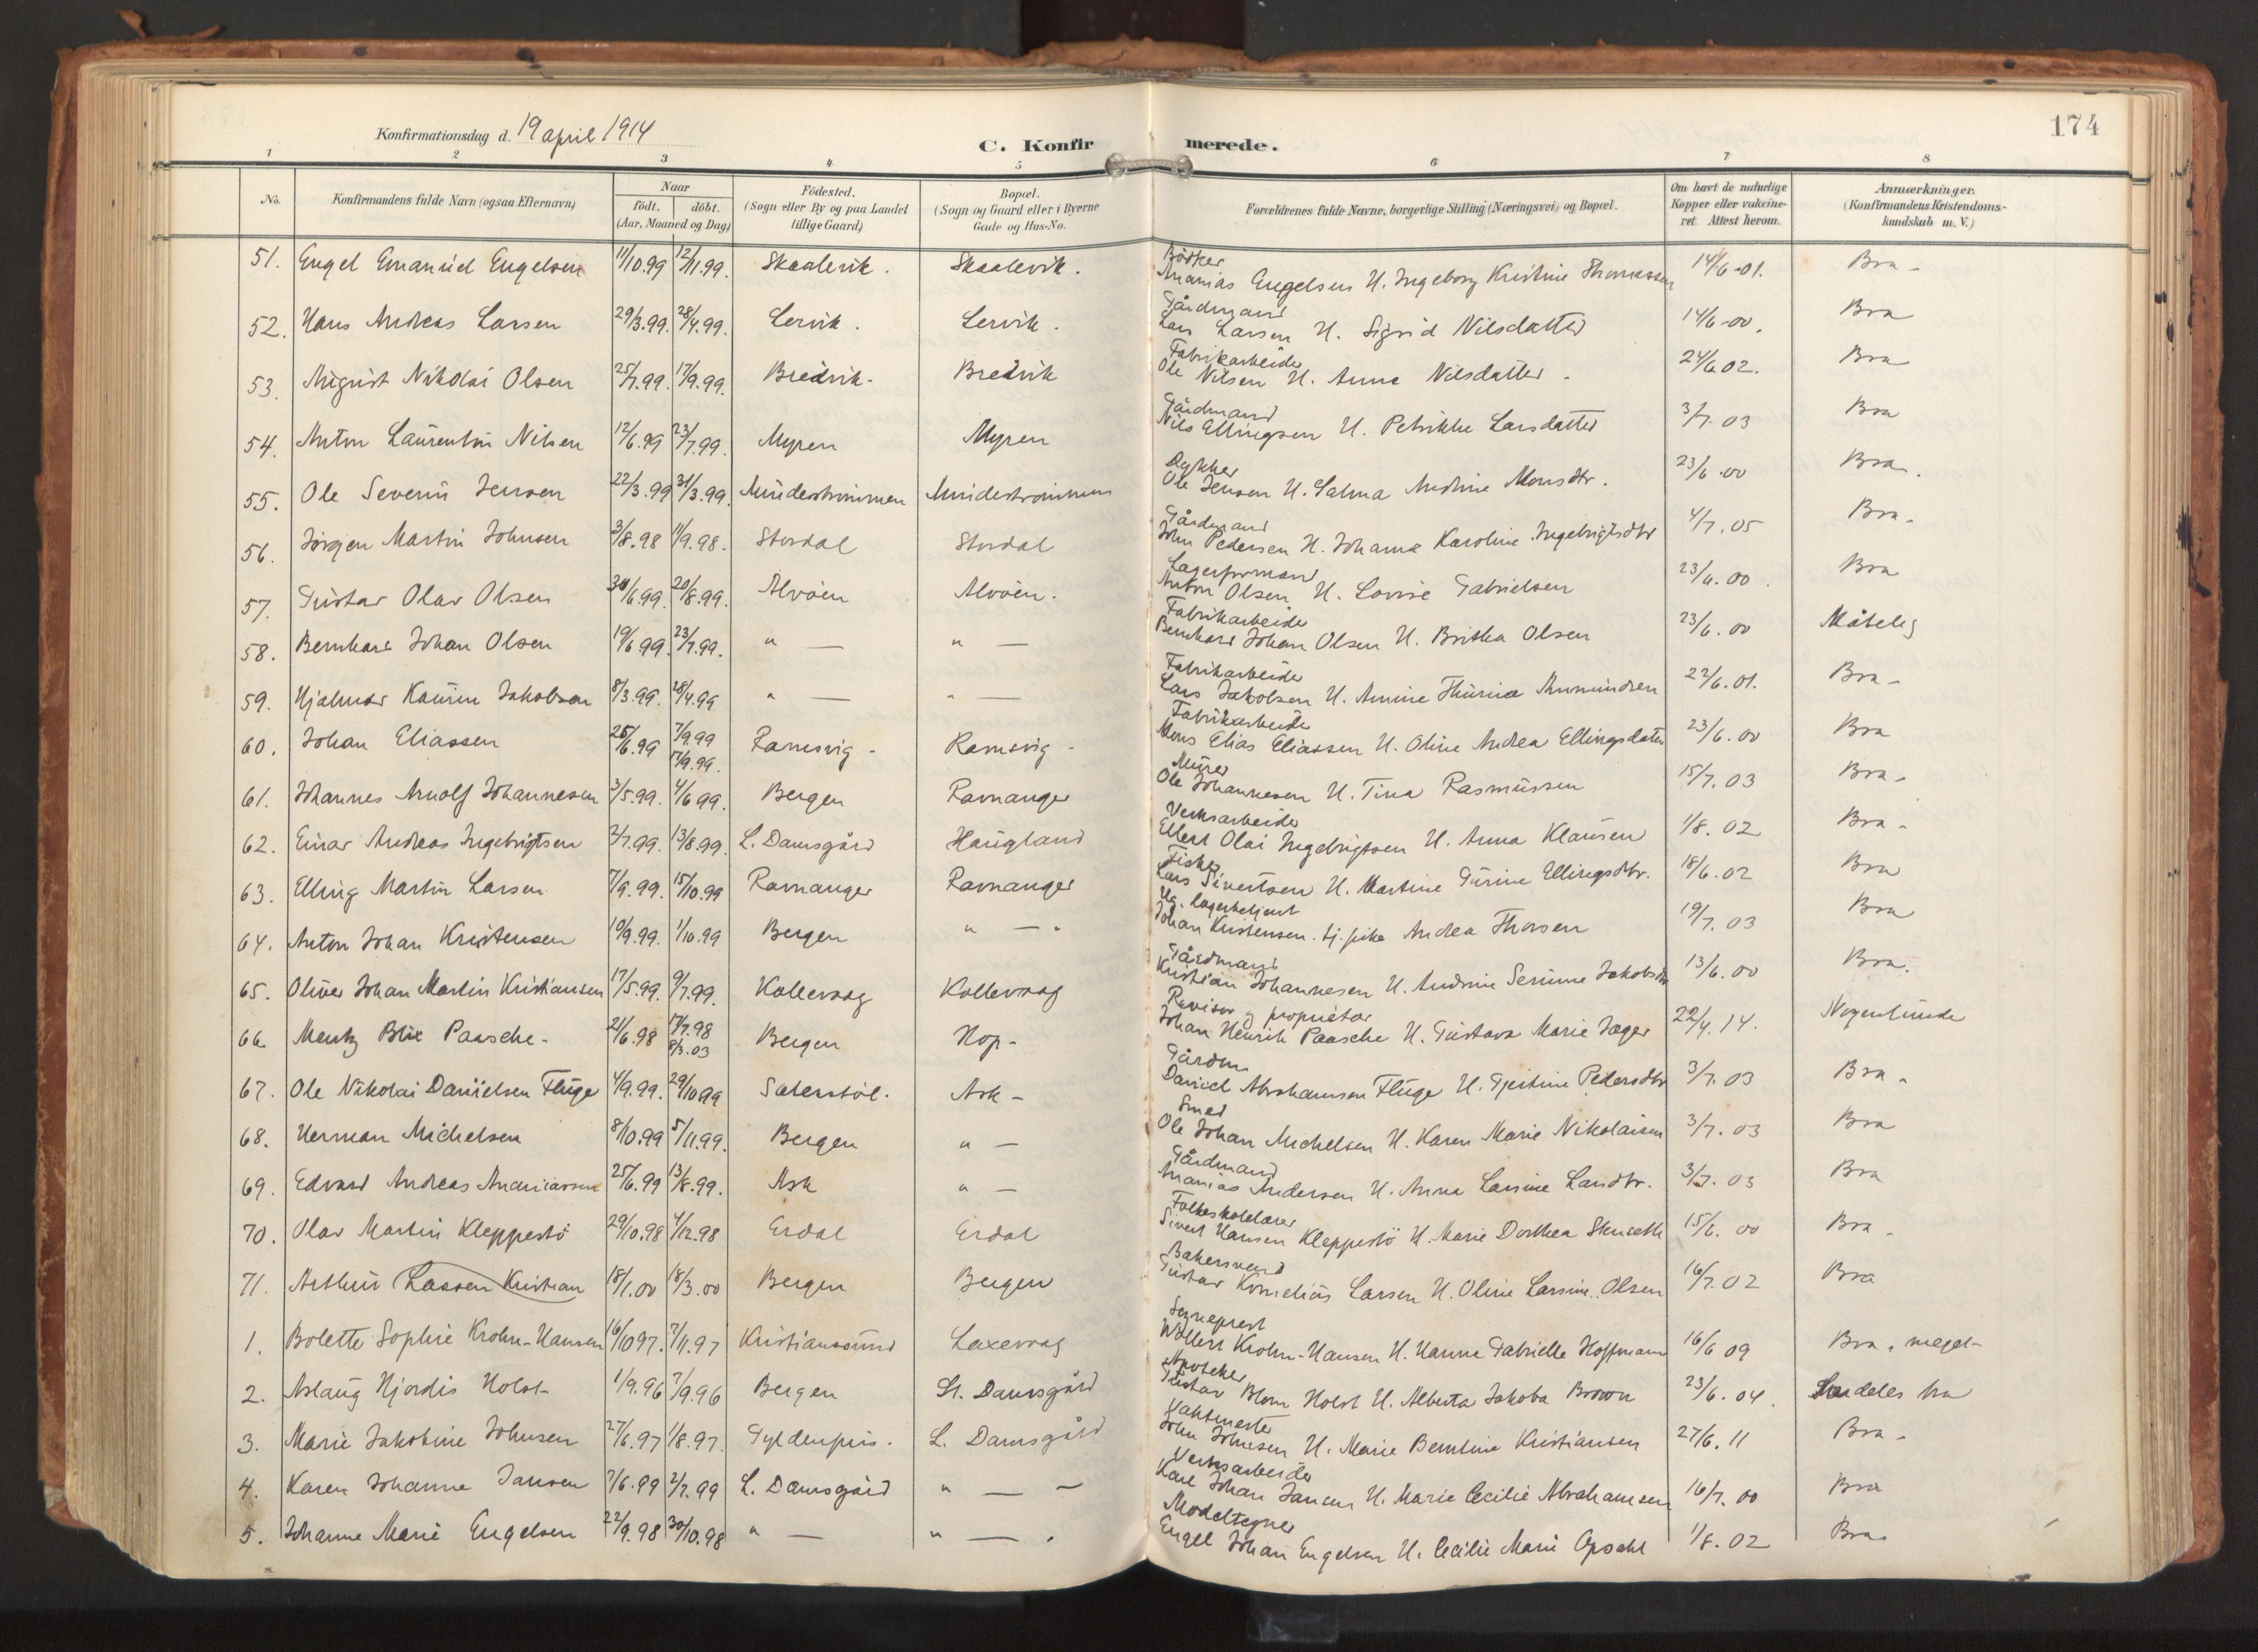 174
Konfirmationsdag d. 19 april 1914
C. Konfirmerede.
1 2 3 4 5 6 7 8
No. | Konfirmandens fulde Navn (ogsaa Efternavn) | Naar födt. döbt. (Aar, Maaned og Dag) | Födested. (Sogn eller By og paa Landet tillige Gaard) | Bopæl. (Sogn og Gaard eller i Byerne Gade og Hus-No. | Forældrenes fulde Navne, borgerlige Stilling (Næringsvei) og Bopæl. | Om havt de naturlige Kopper eller vakcineret. Attest herom. | Anmærkninger. (Konfirmandens Kristendomskundskab m. V.)
51. Engel Emanuel Engelsen 11/10.99 12/11.99. Skaalevik. Skaalevik. Bödker Ananias Engelsen H. Ingeborg Kristine Thomassen 14/6-01. Bra -
52. Hans Andreas Larsen 29/3.99. 28/4.99. Lervik. Lervik. Gårdmand Lars Larsen H. Sigrid Nilsdatter 14/6-00. Bra
53. August Nikolai Olsen 25/7.99. 17/9.99. Bredvik. Bredvik Fabrikarbeider Ole Nilsen H. Anna Nilsdatter - 24/6.02. Bra
54. Anton Laurentin Nilsen 12/6.99 23/7.99. Myren Myren Gårdmand Nils Ellingsen H. Petrikke Larsdatter 3/7.03 Bra
55. Ole Severin Jensen 22/3.99 31/3.99. Mindeströmmen Mindeströmmen Dykker Ole Jensen H. Salma Andrine Monsdtr. 23/6.00 Bra.
56. Jörgen Martin Johnsen 3/8.98 11/9.98. Stordal Stordal Gårdmand John Pedersen H. Johanna Karoline Ingebrigtsdtr 4/7.05 Bra.
57. Gustav Olav Olsen 30/6.99. 20/8.99. Alvöen Alvöen. Lagerformand Anton Olsen H. Lovise Gabrielsen 23/6.00. Bra
58. Bernhard Johan Olsen 19/6 99. 23/7.99. " — " — Fabrikarbeider Bernhard Johan Olsen H. Britha Olsen 23/6.00 Måtelig
59. Hjalmar Kaurin Jakobsen 8/3.99. 28/4.99 " — " — Fabrikarbeider Lars Jakobsen H. Amine Thurine Amundsen 22/6.01. Bra -
60. Johan Eliassen 25/6.99 7/9.99 17/9.99. Ramsvig - Ramsvig - Fabrikarbeider Mons Elias Eliassen H. Oline Andrea Ellingsdatter 23/6.00 Bra
61. Johannes Arnolf Johannesen 3/5.99. 4/6 99. Bergen Ravnanger Murer Ole Johannesen H. Tina Rasmussen 15/7.03 Bra -
62. Einar Andreas Ingebrigtsen 2/7.99. 13/8.99. L. Damsgård Haugland Verksarbeider Ellert Olai Ingebrigtsen H. Anna Klausen 1/8.02 Bra -
63. Elling Martin Larsen 7/9.99. 15/10.99 Ravnanger Ravnanger Fisker Lars Sivertsen H. Martine Gurine Ellingsdtr. 18/6.02 Bra
64. Anton Johan Kristensen 10/9.99. 1/10.99 Bergen " — " Ug. lagerbetjent Johan Kristensen. tj. pike Andrea Thorsen 19/7.03 Bra
65. Oliver Johan Martin Kristiansen 17/5.99. 9/7.99. Kollevaag Kollevaag Gårdmand Kristian Johannesen H. Andrine Serine Jakobsdtr 13/6.00 Bra.
66. Mentz Blix Paasche - 21/6.98 17/7.98 8/3.03 Bergen Hop - Revisor og proprietær Johan Henrik Paasche H. Gustava Marie Jæger 22/4.14. Nogenlunde
67. Ole Nikolai Danielsen Fluge 4/9.99. 29/10 99 Säterstöl. Ask - Gårdm Daniel Abrahamsen Fluge H. Gjertine Pedersdtr 3/7.03 Bra -
68. Herman Michelsen 8/10.99 5/11.99. Bergen " — Smed Ole Johan Michelsen H. Karen Marie Nikolaisen 3/7.03 Bra
69. Edvard Andreas Ananiassen 25/6.99 13/8.99. Ask " — Gårdmand Ananias Andersen H. Anna Larsine Larsdtr. 3/7.03 Bra
70. Olav Martin Kleppestö 29/10.98 4/12.98 Erdal Erdal Folkeskolelærer Sivert Hansen Kleppestö H. Marie Dorthea Stenseth 15/6.00 Bra -
71. Arthur Lassen Kristian 18/1.00 18/3.00 Bergen Bergen Bakersvend Gustav Kornelius Larsen H. Oline Larsine Olsen 16/7.02 Bra
1. Bolette Sophie Krohn-Hansen 16/10 97. 7/11.97 Kristianssund Laxevaag Sogneprest Willert Krohn-Hansen H. Hanna Gabrielle Hoffmann 16/6 09 Bra, meget -
2. Aslaug Hjördis Holst 1/9.96 7/9.96 Bergen St. Damsgård Apoteker Gustav Blom Holst H. Alberta Jakoba Brown 23/6.04. Særdeles bra
3. Marie Jakobine Johnsen 27/6.97 1/8.97. Gyldenpris. L. Damsgård Vaktmester John Johnsen H. Marie Berntine Kristiansen 27/6.11 Bra -
4. Karen Johanne Jansen 7/6.99 2/7.99 L. Damsgård " — Verksarbeider Karl Johan Jansen H. Marie Cecilie Abrahamsen 16/7.00 Bra
5. Johanne Marie Engelsen 22/9.98 30/10.98 " — " — . Modeltegner Engel Johan Engelsen H. Cecilie Marie Opsahl 1/8.02 Bra